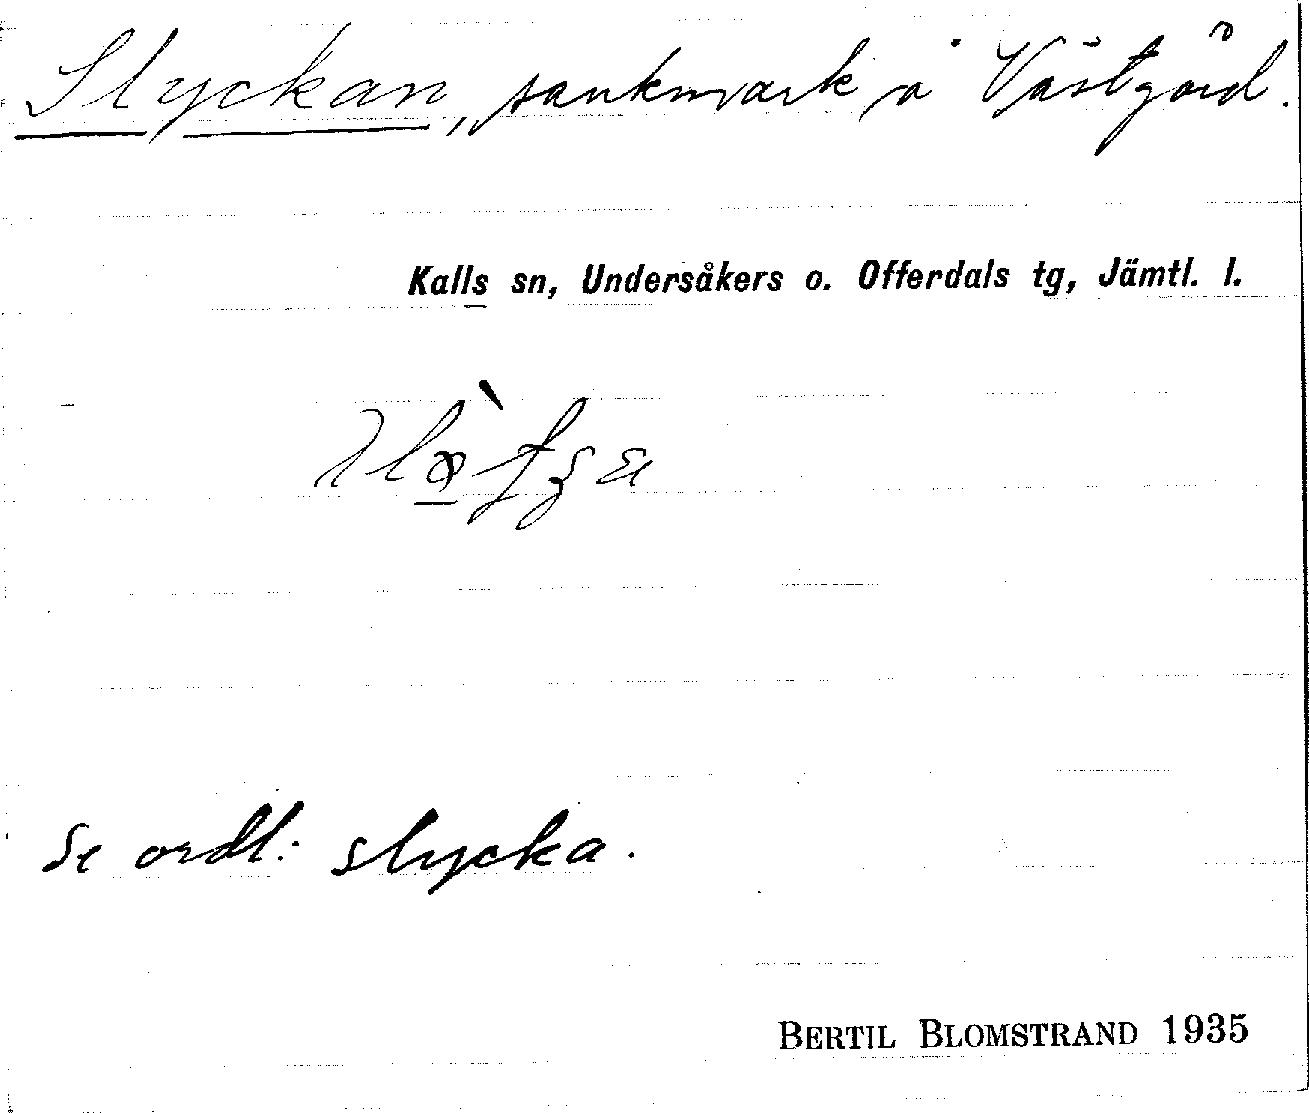 Slyckan, sankmark å Västgård.
Kalls sn, Undersåkers o. Offerdals tg, Jämtl. l.
Se ordl: slycka.
BERTIL BLOMSTRAND 1935